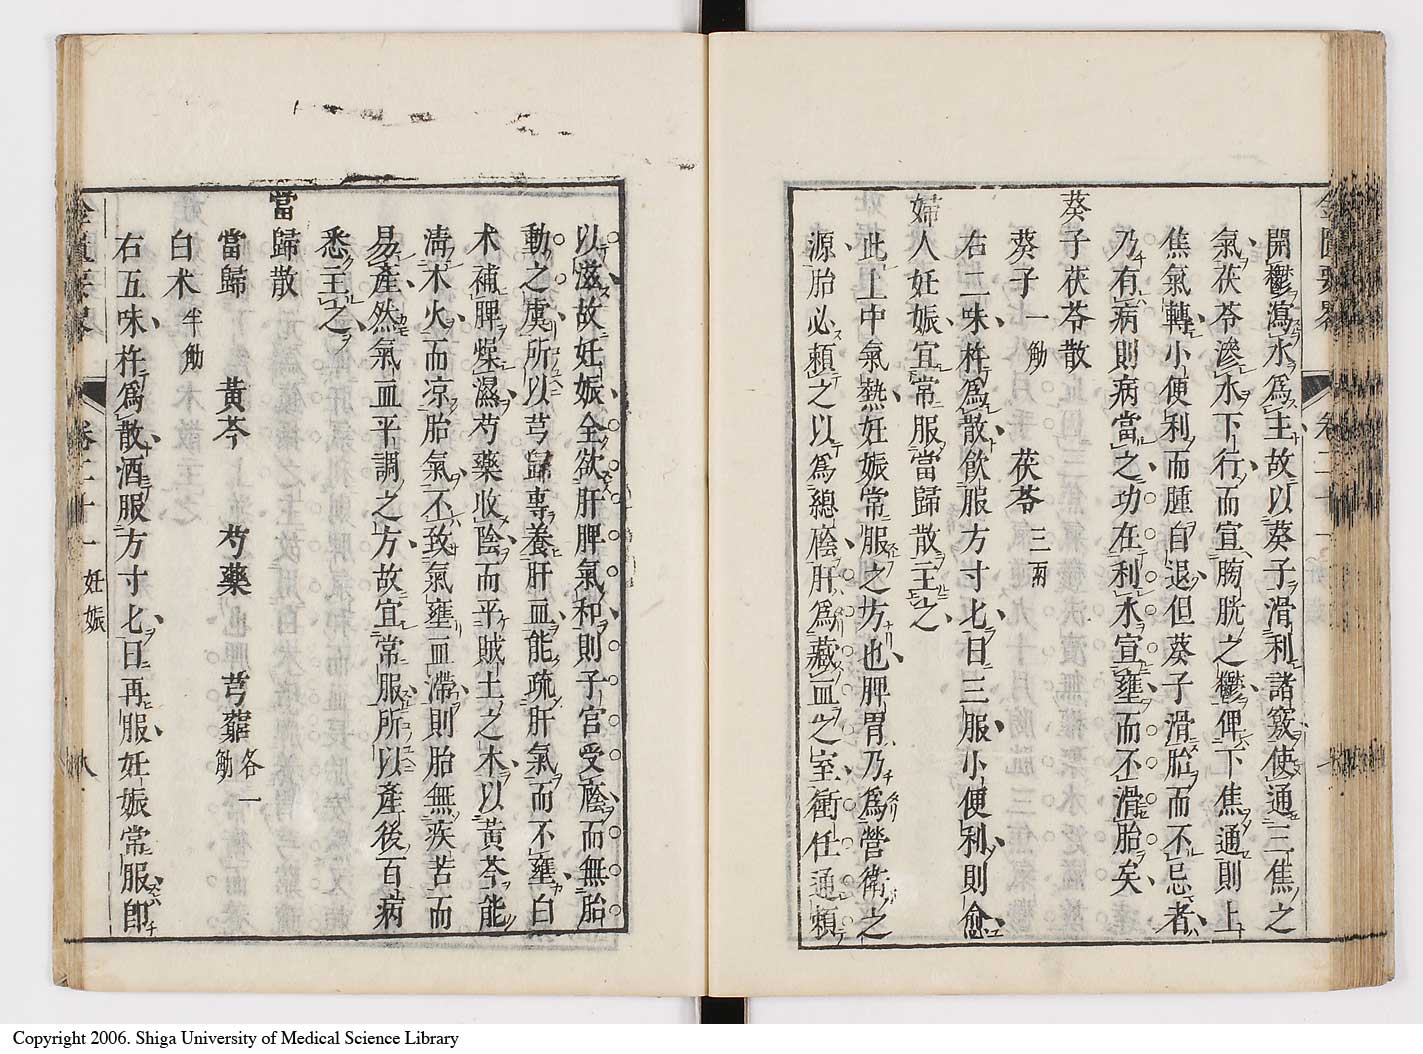 開鬱瀉水爲主故以葵子滑利諸竅使通三焦之
氣茯苓滲水下行而宣膀胱之鬱俾下焦通則上
焦氣轉小便利而腫自退但葵子滑胎而不忌者
乃有病則病當之功在利水宣壅而不滑胎矣
葵子茯苓散
葵子一觔 茯苓三兩
右二味杵爲散飲服方寸匕日三服小便利則愈
婦人妊娠宜常服當歸散主之
此上中氣熱妊娠常服之方也脾胃乃爲營衛之
源胎必賴之以爲總廕肝爲藏血之室衝任通賴
以滋故妊娠全欲肝脾氣和則子宮受廕而無胎
動之虞所以芎歸專養肝血能疏肝氣而不壅白
术補脾燥濕芍藥收陰而平賊土之木以黃芩能
清木火而凉胎氣不致氣壅血滯則胎無疾苦而
易產然氣血平調之方故宜常服所以產後百病
悉主之
當歸散
當歸 黃芩 芍藥 芎藭各一觔
白术半觔
右五味杵爲散酒服方寸匕日再服妊娠常服卽
金匱要畧 卷二十一 妊娠 八
Copyright 2006. Shiga University of Medical Science Library